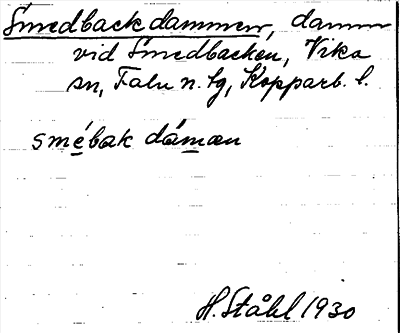 Smedbackdammen, damm
vid Smedbacken, Vika
sn, Falu n. tg, Kopparb. l.
smébak dáman
H. Ståhl 1930